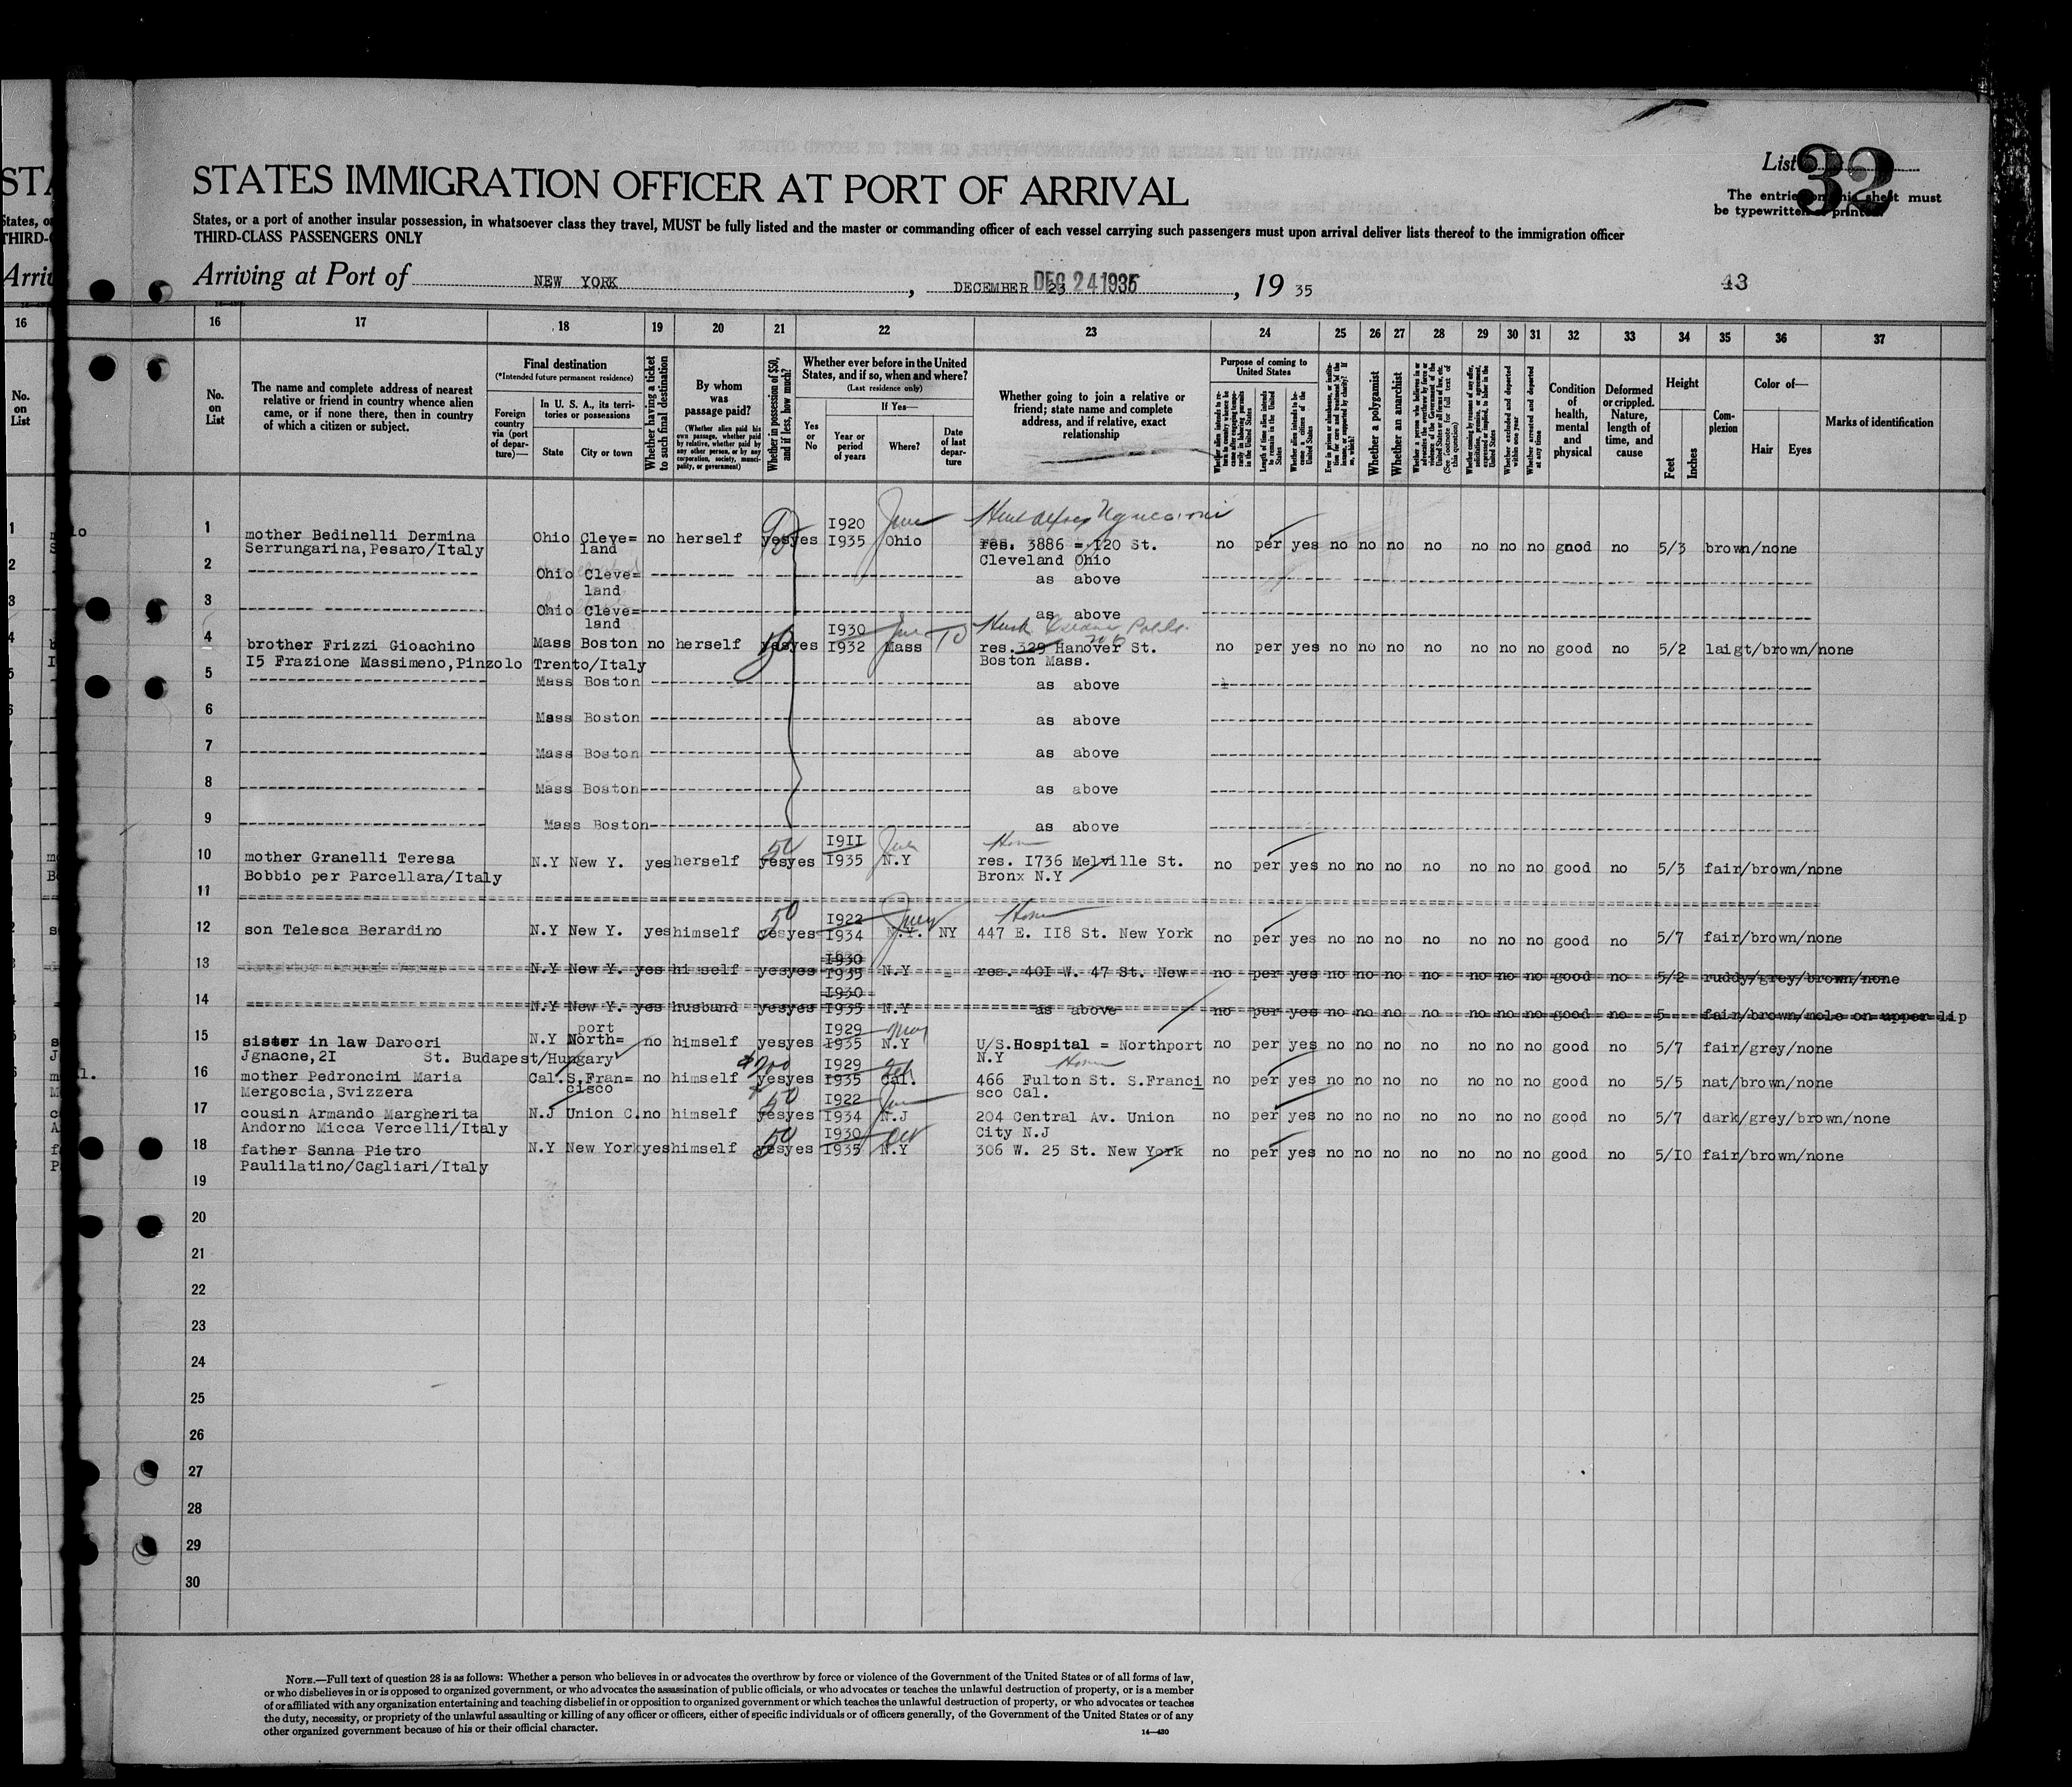 STATES IMMIGRATION OFFICER AT PORT OF ARRIVAL
List 32
The entries on this sheet must
be typewritten or printed.
States, or a port of another insular possession, in whatsoever class they travel, MUST be fully listed and the master or commanding officer of each vessel carrying such passengers must upon arrival deliver lists thereof to the immigration officer
THIRD-CLASS PASSENGERS ONLY
Arriving at Port of NEW YORK, DECEMBER 23 DEC 24 1935, 19 35
43
16 17 18 19 20 21 22 23 24 25 26 27 28 29 30 31 32 33 34 35 36 37
No. on List
The name and complete address of nearest
relative or friend in country whence alien
came, or if none there, then in country
of which a citizen or subject.
Final destination
(*Intended future permanent residence)
Foreign country via (port of departure)—
In U. S. A., its territories or possessions
State
City or town
Whether having a ticket to such final destination
By whom was passage paid?
(Whether alien paid his own passage, whether paid by relative, whether paid by any other person, or by any corporation, society, municipality, or government)
Whether in possession of $50, and if less, how much?
Whether ever before in the United
States, and if so, when and where?
(Last residence only)
Yes or No
If Yes—
Year or period of years
Where?
Date of last departure
Whether going to join a relative or
friend; state name and complete
address, and if relative, exact
relationship
Purpose of coming to United States
Whether a polygamist
Whether an anarchist
Condition of health, mental and physical
Deformed or crippled. Nature, length of time, and cause
Height
Feet
Inches
Complexion
Color of—
Hair
Eyes
Marks of identification
1 mother Bedinelli Dermina Ohio Cleve= no herself yes yes I920 I935 June Ohio res. 3886 = 120 St. no per yes no no no no no no no good no 5/3 brown/none
Serrungarina, Pesaro/Italy land Cleveland Ohio
2 Ohio Cleve= as above
land
3 Ohio Cleve= as above
land
4 brother Frizzi Gioachino Mass Boston no herself yes yes I930 I932 Mass res. 329 Hanover St. no per yes no no no no no no no good no 5/2 laigt/brown/none
I5 Frazione Massimeno, Pinzolo Trento/Italy Boston Mass.
5 Mass Boston as above
6 Mass Boston as above
7 Mass Boston as above
8 Mass Boston as above
9 Mass Boston as above
10 mother Granelli Teresa N.Y New Y. yes herself 50 yes yes I9II I935 N.Y res. I736 Melville St. no per yes no no no no no no no good no 5/3 fair/brown/none
Bobbio per Parcellara/Italy Bronx N.Y
11
12 son Telesca Berardino N.Y New Y. yes himself 50 yes yes I922 I934 N.Y. NY 447 E. II8 St. New York no per yes no no no no no no no good no 5/7 fair/brown/none
13 N.Y New Y. yes himself yes yes I930 I935 N.Y res. 40I W. 47 St. New no per yes no no no no no no no good no 5/2 ruddy/grey/brown/none
14 N.Y New Y. yes husband yes yes I930 I935 N.Y as above no per yes no no no no no no no good no 5 fair/brown/mole on upper lip
15 sister in law Darocri N.Y North= port no himself yes yes I929 I935 May N.Y U/S.Hospital = Northport no per yes no no no no no no no good no 5/7 fair/grey/none
Jgnacne, 2I St. Budapest/Hungary N.Y
16 mother Pedroncini Maria Cal. S.Fran= no himself yes yes I929 I935 Cal. 466 Fulton St. S.Franci no per yes no no no no no no no good no 5/5 nat/brown/none
Mergoscia, Svizzera cisco sco Cal.
17 cousin Armando Margherita N.J Union C. no himself 50 yes yes I922 I934 N.J 204 Central Av. Union no per yes no no no no no no no good no 5/7 dark/grey/brown/none
Andorno Micca Vercelli/Italy City N.J
18 father Sanna Pietro N.Y New York yes himself 50 yes yes I930 I935 Oct N.Y 306 W. 25 St. New York no per yes no no no no no no no good no 5/I0 fair/brown/none
Paulilatino/Cagliari/Italy
19
20
21
22
23
24
25
26
27
28
29
30
NOTE.—Full text of question 28 is as follows: Whether a person who believes in or advocates the overthrow by force or violence of the Government of the United States or of all forms of law,
or who disbelieves in or is opposed to organized government, or who advocates the assassination of public officials, or who advocates or teaches the unlawful destruction of property, or is a member
of or affiliated with any organization entertaining and teaching disbelief in or opposition to organized government or which teaches the unlawful destruction of property, or who advocates or teaches
the duty, necessity, or propriety of the unlawful assaulting or killing of any officer or officers, either of specific individuals or of officers generally, of the Government of the United States or of any
other organized government because of his or their official character.
14—430